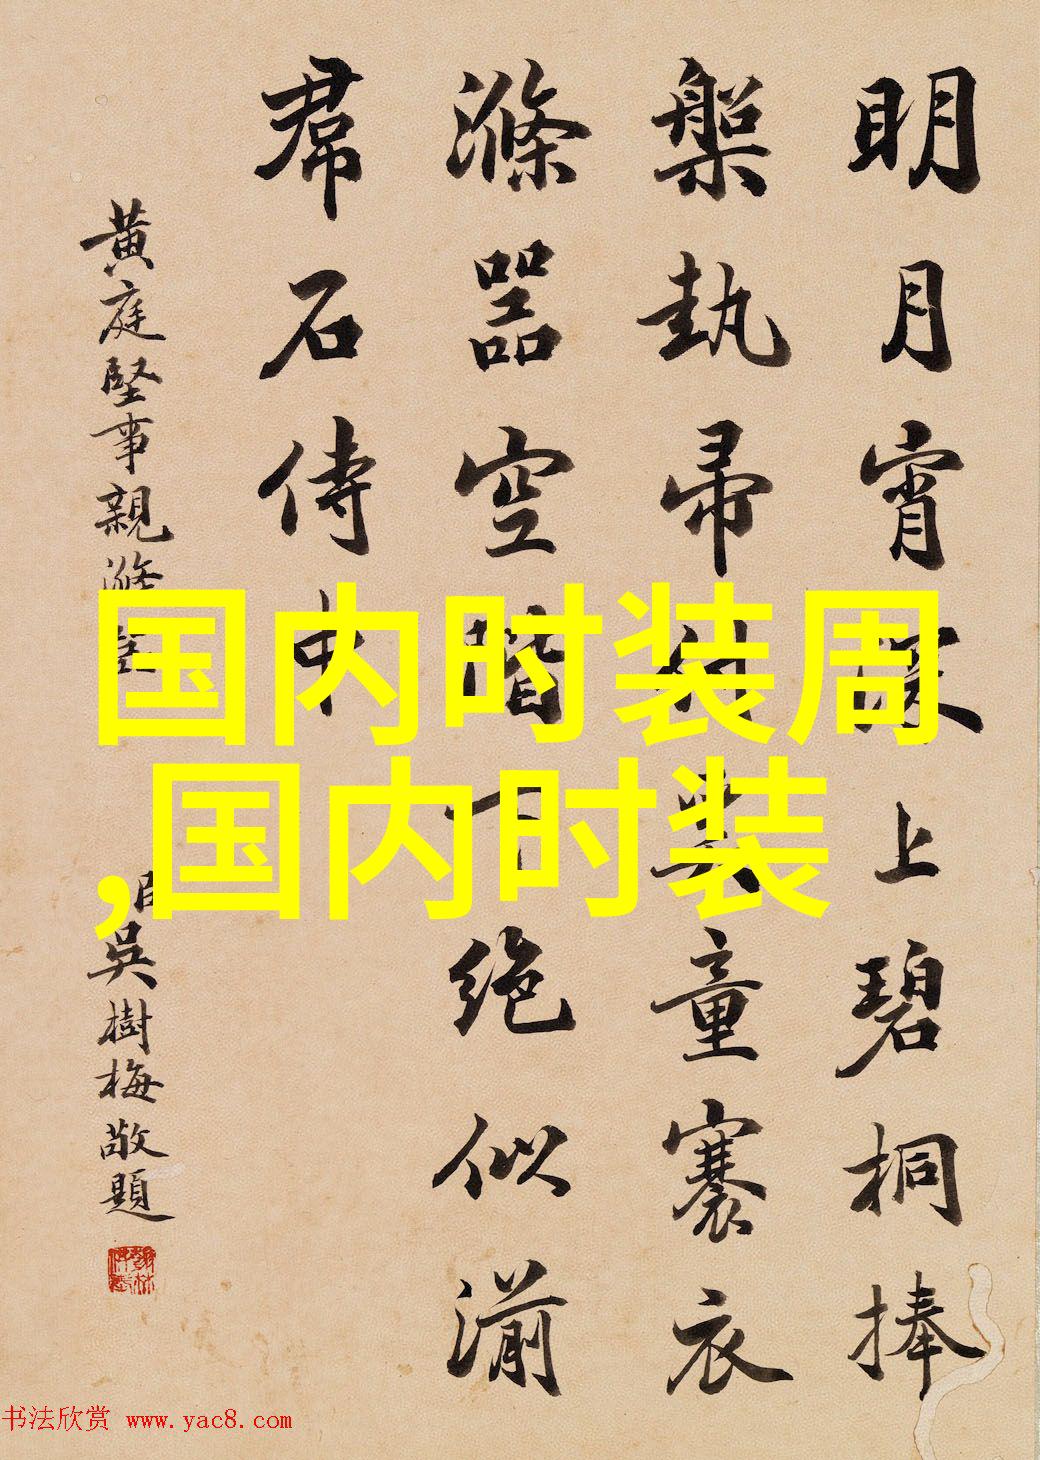 明月宵深上碧桐捧
槃執帚奚童褰衣
滌器空階下絶似湔
帬石侍中
黃庭堅事親滌
臣吳樹梅敬題
国内时装周
,国内时装
书法欣赏 www.yac8.com